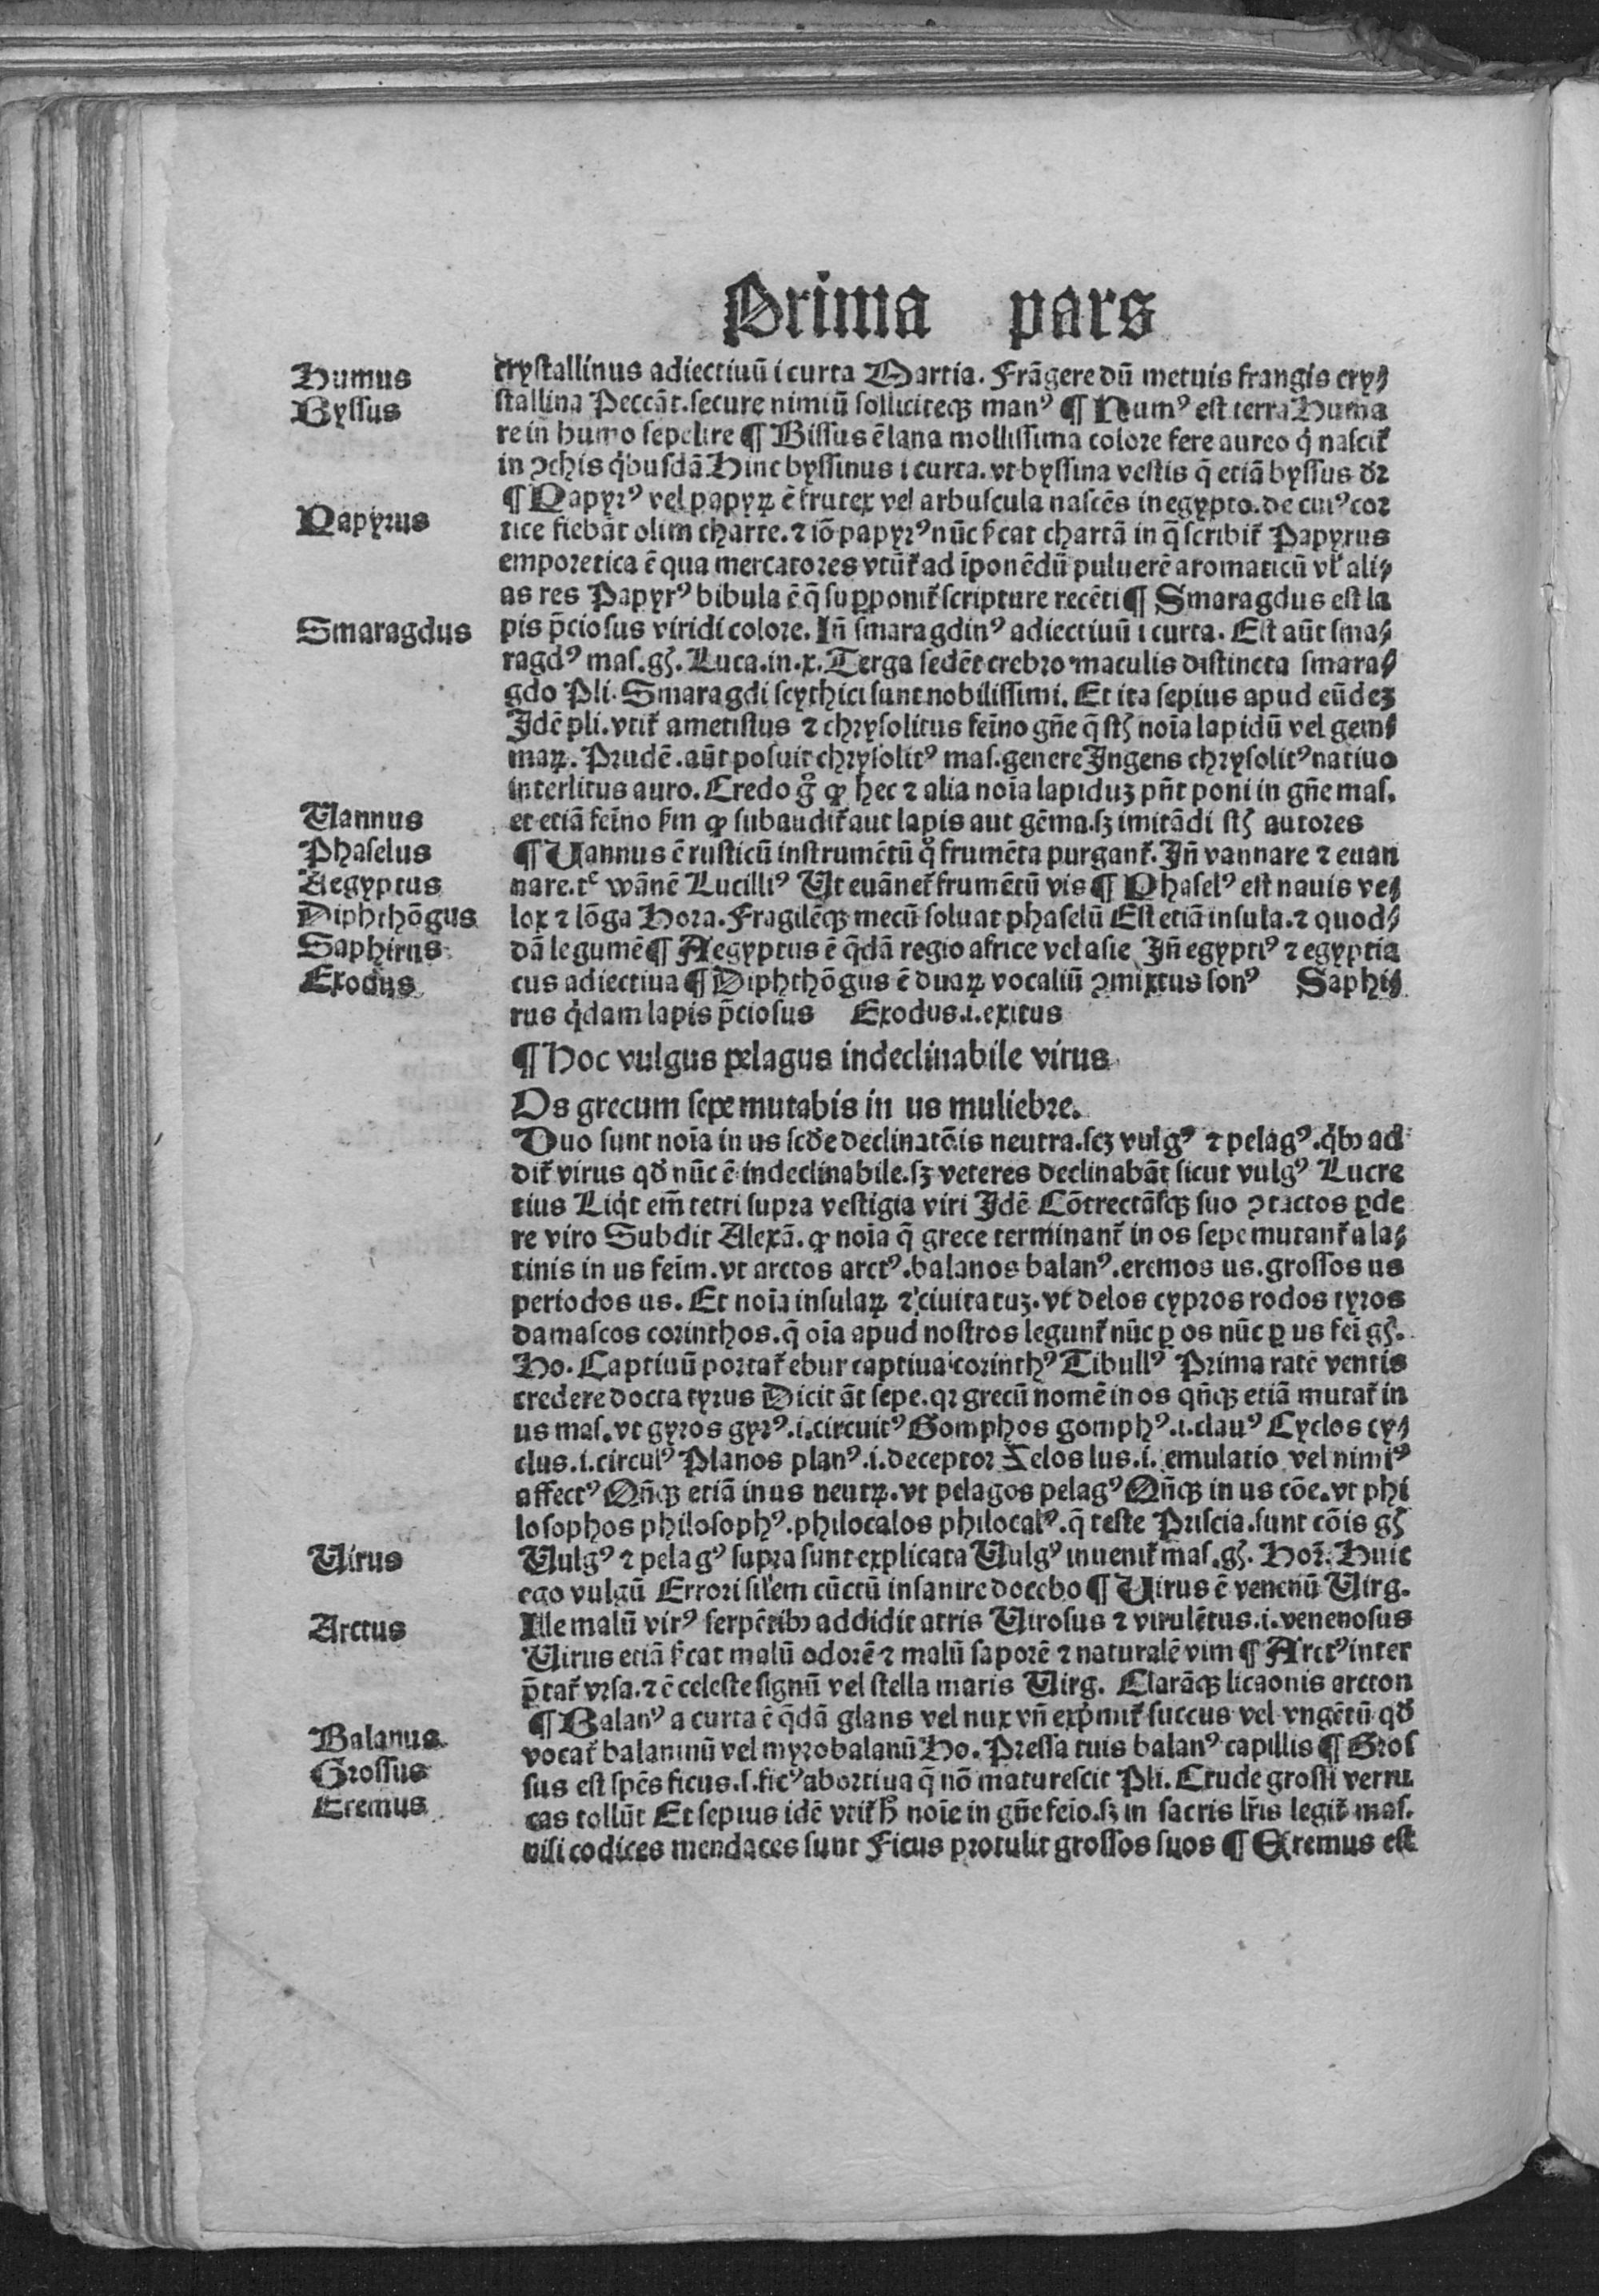 Prima pars
Humus
Byssus
crystallinus adiectiuū i curta Martia. Frāgere dū metuis frangis cry⸗
stallina Peccāt. secure nimiū solliciteqꝫ manꝰ ¶ Humꝰ est terra Huma
re in humo sepelire ¶ Bissus ē lana mollissima colore fere aureo q̄ nascit᷑
in ꝯchis q̇busdā Hinc byssinus i curta. vt byssina vestis q̄ etiā byssus dr̄
Papyrus
¶ Papyrꝰ vel papyꝝ ē frutex vel arbuscula nascēs in egypto. de cuiꝰ cor
tice fiebāt olim charte. ⁊ iō papyrꝰ nūc sͥcat chartā in q̄ scribit᷑ Papyrus
emporetica ē qua mercatores vtūt᷑ ad īponēdū puluerē aromaticū vl᷑ ali⸗
as res Papyrꝰ bibula ē q̄ suꝑponit᷑ scripture recēti ¶ Smaragdus est la
Smaragdus
pis p̄ciosus viridi colore. Iñ smaragdinꝰ adiectiuū i curta. Est aūt sma⸗
ragdꝰ mas. gn̄. Luca. in. x. Terga sedēt crebro maculis distincta smara⸗
gdo Pli. Smaragdi scythici sunt nobilissimi. Et ita sepius apud eūdeꝫ
Idē pli. vtit᷑ ametistus ⁊ chrysolitus feīno gn̄e q̄ st̄ noīa lapidū vel gem⸗
maꝝ. Prudē. aūt posuit chrysolitꝰ mas. genere Ingens chrysolitꝰ natiuo
interlitus auro. Credo g̊ ꝙ hec ⁊ alia noīa lapiduꝫ pn̄t poni in gn̄e mas.
et etiā feīno sͫ ꝙ subaudit᷑ aut lapis aut gēma. sꝫ imitādi st̄ autores
Vannus
Phaselus
Aegyptus
Diphthōgus
Saphirus
Exodus
¶ Vannus ē rusticū instrumētū q̊ frumēta purgant᷑. Iñ vannare ⁊ euan
nare. tͤ wānē Lucilliꝰ Vt euānet᷑ frumētū vis ¶ Phaselꝰ est nauis ve⸗
lox ⁊ lōga Hora. Fragilēqꝫ mecū soluat phaselū Est etiā insula. ⁊ quod⸗
dā legumē ¶ Aegyptus ē q̄dā regio africe vel asie Iñ egyptiꝰ ⁊ egyptia
cus adiectiua ¶ Diphthōgus ē duaꝝ vocaliū ꝯmixtus sonꝰ Saphi⸗
rus q̇dam lapis p̄ciosus Exodus .i. exitus
¶ Hoc vulgus pelagus indeclinabile virus
Os grecum sepe mutabis in us muliebre.
Duo sunt noīa in us scd̄e declinatōis neutra. scꝫ vulgꝰ ⁊ pelagꝰ. q̇bꝫ ad
dit᷑ virus qd̄ nūc ē indeclinabile. sꝫ veteres declinabāt sicut vulgꝰ Lucre
tius Liq̇t em̄ tetri supra vestigia viri Idē Cōtrectāsqꝫ suo ꝯtactos ꝑde
re viro Subdit Alexā. ꝙ noīa q̄ grece terminant᷑ in os sepe mutant᷑ a la⸗
tinis in us feīm. vt arctos arctꝰ. balanos balanꝰ. eremos us. grossos us
periodos us. Et noīa insulaꝝ ⁊ ciuitatuꝫ. vt delos cypros rodos tyros
damascos corinthos. q̄ oīa apud nostros legunt᷑ nūc ꝑ os nūc ꝑ us feī gn̄.
Ho. Captiuū portat᷑ ebur captiua corinthꝰ Tibullꝰ Prima ratē ventis
credere docta tyrus Dicit āt sepe. qꝛ grecū nomē in os qn̄qꝫ etiā mutat᷑ in
us mas. vt gyros gyrꝰ .i. circuitꝰ Gomphos gomphꝰ .i. clauꝰ Cyclos cy⸗
clus .i. circulꝰ Planos planꝰ .i. deceptor Zelos lus .i. emulatio vel nimiꝰ
affectꝰ Qn̄qꝫ etiā in us neutꝝ. vt pelagos pelagꝰ Qn̄qꝫ in us cōe. vt phi
losophos philosophꝰ. philocalos philocalꝰ. q̄ teste Priscia. sunt cōis gn̄
Virus
Vulgꝰ ⁊ pelagꝰ supra sunt explicata Vulgꝰ inuenit᷑ mas. gn̄. Hor̄. Huic
ego vulgū Errori sil᷑em cūctū insanire docebo ¶ Virus ē venenū Virg.
Arctus
Ille malū virꝰ serpētibꝫ addidit atris Virosus ⁊ virulētus .i. venenosus
Virus etiā sͥcat malū odorē ⁊ malū saporē ⁊ naturalē vim ¶ Arctꝰ inter
p̄tat᷑ vrsa. ⁊ ē celeste signū vel stella maris Virg. Clarāqꝫ licaonis arcton
Balanus
Grossus
Eremus
¶ Balanꝰ a curta ē q̄dā glans vel nux vn̄ exp̄mit᷑ succus vel vngētū qd̄
vocat᷑ balaninū vel myrobalanū Ho. Pressa tuis balanꝰ capillis ¶ Gros
sus est spēs ficus .s. ficꝰ abortiua q̄ nō maturescit Pli. Crude grossi verru
cas tollūt Et sepius idē vtit᷑ h̊ noīe in gn̄e feīo. sꝫ in sacris lr̄is legit᷑ mas.
nisi codices mendaces sunt Ficus protulit grossos suos ¶ Eremus est